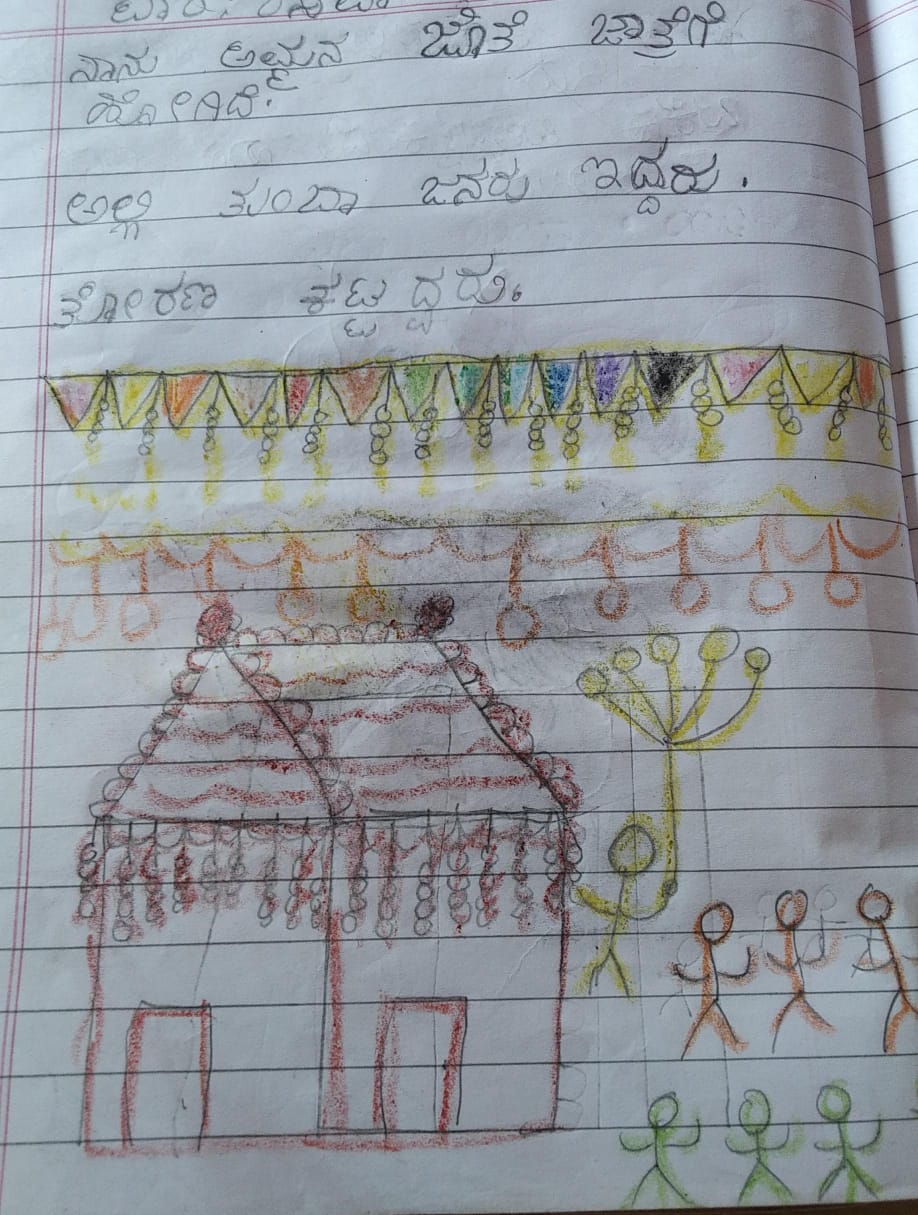 ವಾರ:
ನಾನು ಅಮ್ಮನ ಜೊತೆ ಜಾತ್ರೆಗೆ
ಹೋಗಿದೆ.
ಅಲ್ಲಿ ತುಂಬಾ ಜನರು ಇದ್ದರು.
ತೋರಣ ಕಟ್ಟಿದ್ದರು.